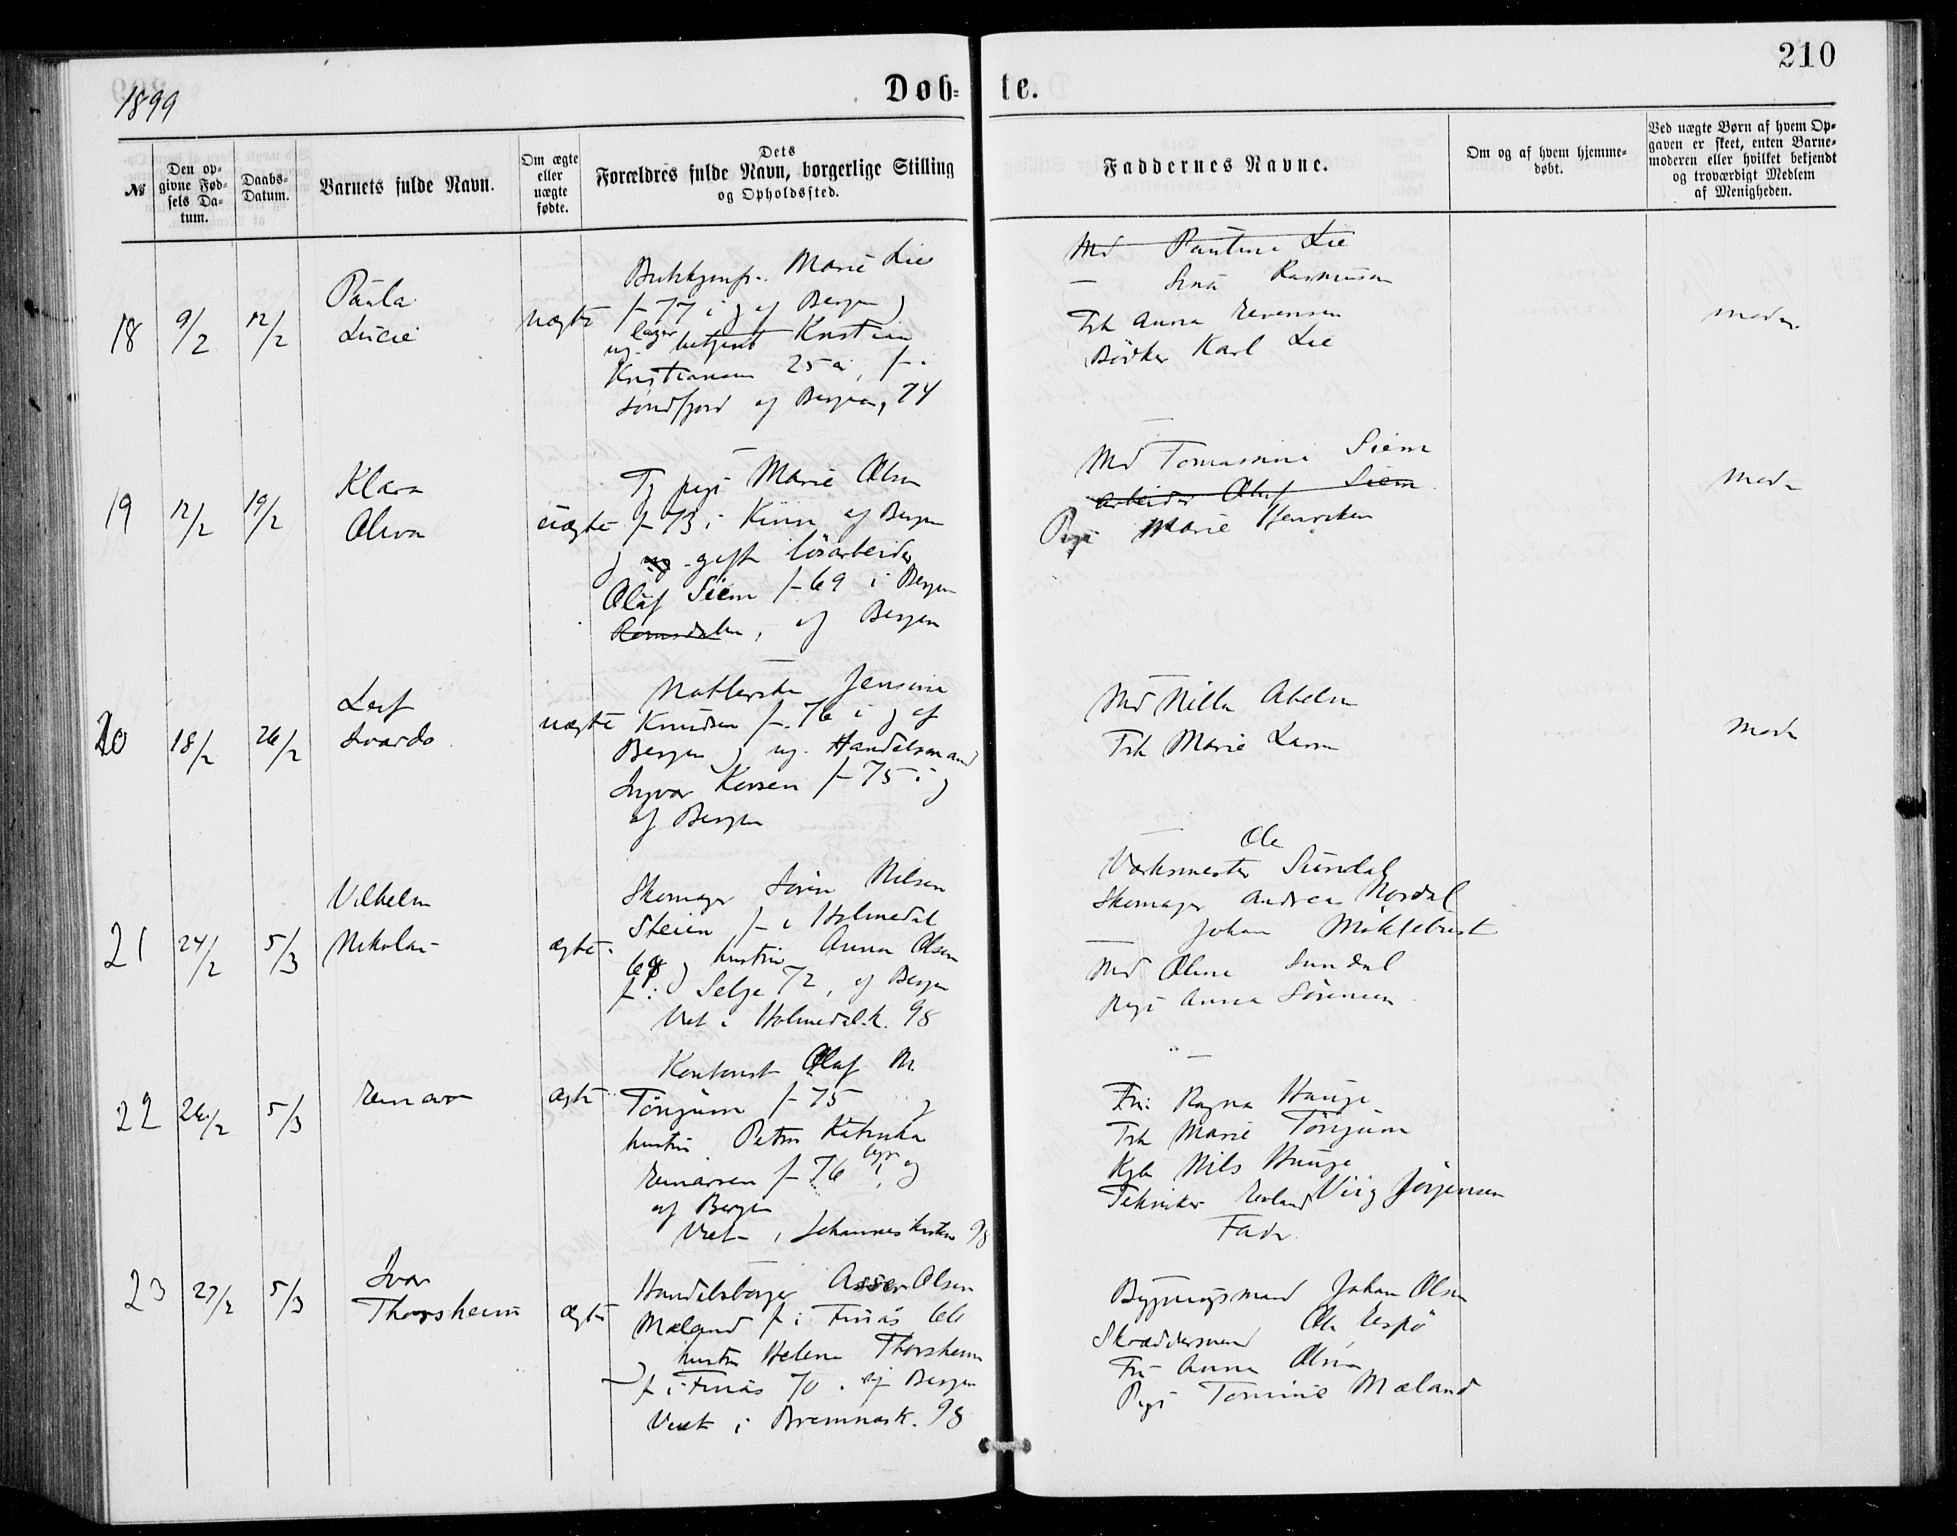 1899
Døb= te.
210
№
Den op=
givne Fød=
sels Da=
tum.
Daabs=
Datum.
Barnets fulde Navn.
Om ægte
eller
uægte
fødte.
Dets
Forældres fulde Navn, borgerlige Stilling
og Opholdssted.
Faddernes Navne.
Om og af hvem hjemme=
døbt.
Ved uægte Børn af hvem Op=
gaven er skeet, enten Barne=
moderen eller hvilket bekjendt
og troværdigt Medlem
af Menigheden.
18
9/2
12/2
Paula
Lucie
uægte
Marie Lie
f- 77 i og af Bergen og
ug. lager betjent Kristian
Kristiansen 25 a, f. i
Søndfjord af Bergen, 74
Md Pauline Lie
— Lina Rasmussen
Frk Anna Evensen
Bødker Karl Lie
moder
19
12/2
19/2
Klara
Oliva
uægte
Tj pige Marie Olsen
f- 73 i Kinn af Bergen
og ug gift løsarbeider
Olaf Siem f- 69 i Bergen
Romsdalen, af Bergen
Md Tomasine Siem
Arbeider Olaf Siem
Pige Marie Henriksen
Moder
20
18/2
26/2
Leif
Svardo
uægte
Jensine
Knudsen f- 76 i og af
Bergen og ug. Handelsmand
Ingvar Iversen f- 75 i og
af Bergen
Md Nilla Abelsen
Frk Marie Larsen
Moder
21
24/2
5/3
Vilhelm
Nikolai
ægte
Skomager Søren Nilsen
Steien f- i Holmedal
68 og hustru Anna Olsen
f. i Selje 72, af Bergen
Viet i Holmedal k. 98
Ole
Værksmester Sundal
Skomager Andreas Nordal
Johan Myklebust
Md Oline Sundal
Pige Anna Sørensen
22
26/2
5/3
Einar
ægte
Kontorist Olaf M.
Tönjum f- 75 og
hustru Petra Katinka
Einarsen f- 76 i og
af Bergen
Viet i Johanneskirken 98
Fru Ragna Hauge
Frk Marie Tönjum
Nils Hauge
Tekniker Erland Viig Jörgensen
Fader
23
27/2
5/3
Ivar
Thorsheim
ægte
Handelsborger Asser Olsen
Mæland f i Finås 66
og hustru Helene Thorsheim
f. i Finås 70. af Bergen
Viet i Bremnæs k. 98
Bygningsmand Johan Olsen
Skræddersvend Ole Espø
Fru Anna Olsen
Pige Tomine Mæland